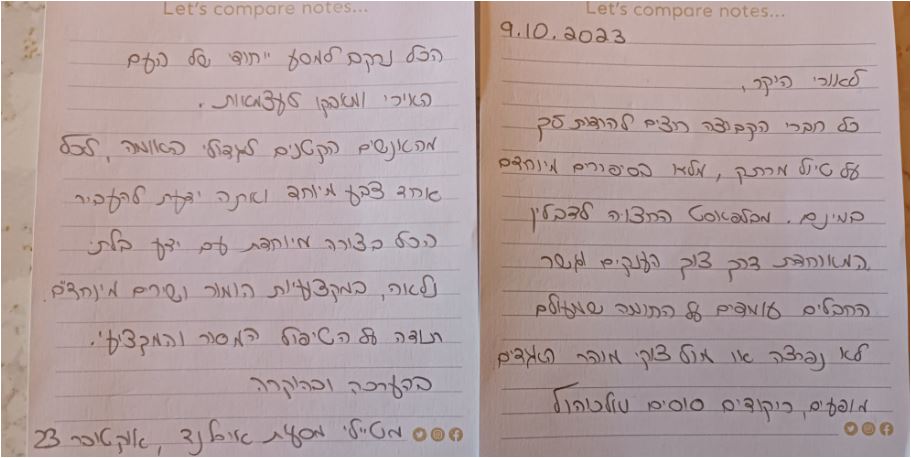 Let's compare notes...
9.10.2023
לאורי היקר,
כל חברי הקבוצה רוצים להודות לך
על טיול מרתק, מלא בסיפורים מיוחדים
במינם. מבלפאסט החצויה לדבלין
המאוחדת דרך צוק הענקים וגשר
החבלים עומדים על החומה שמעולם
לא נפרצה או מול צוקי מוהר האגדים
מופעים, ריקודים סוסים
Let's compare notes...
הכל נרקם למסע ייחודי של העם
האירי ומאבקו לעצמאות.
מהאנשים הקטנים לגדולי האומה, לכל
אחד צבע מיוחד ואתה ידעת להעביר
הכל בצורה מיוחדת עם ידע בלתי
נלאה, במקצעיות הומור ושירים מיוחדים.
תודה על הטיפול המסור והמקצועי.
בהערכה ובהוקרה
מטיילי מסעות אירלנד, אוקטובר 23